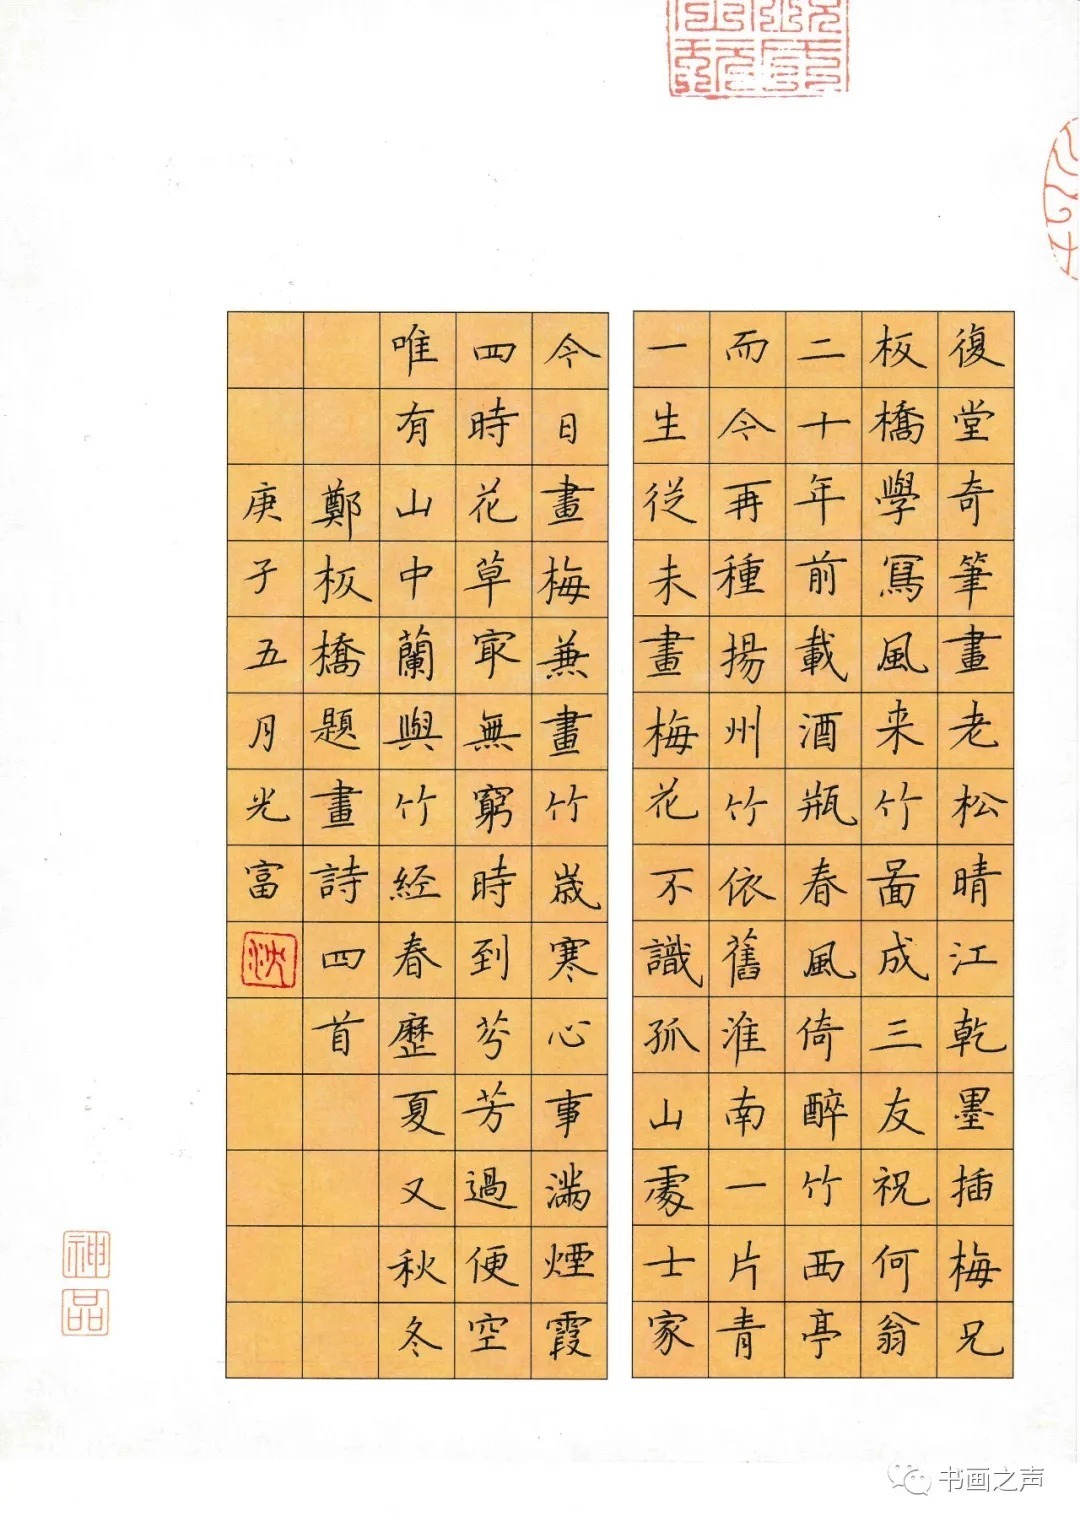 復堂奇筆畫老松晴江乾墨插梅兄
板橋學寫風来竹啚成三友祝何翁
二十年前載酒瓶春風倚醉竹西亭
而今再種揚州竹依舊淮南一片青
一生從未畫梅花不識孤山處士家
今日畫梅兼畫竹歲寒心事滿煙霞
四時花草冣無窮時到芬芳過便空
唯有山中蘭與竹経春歷夏又秋冬
鄭板橋題畫詩四首
庚子五月光富
神品
书画之声